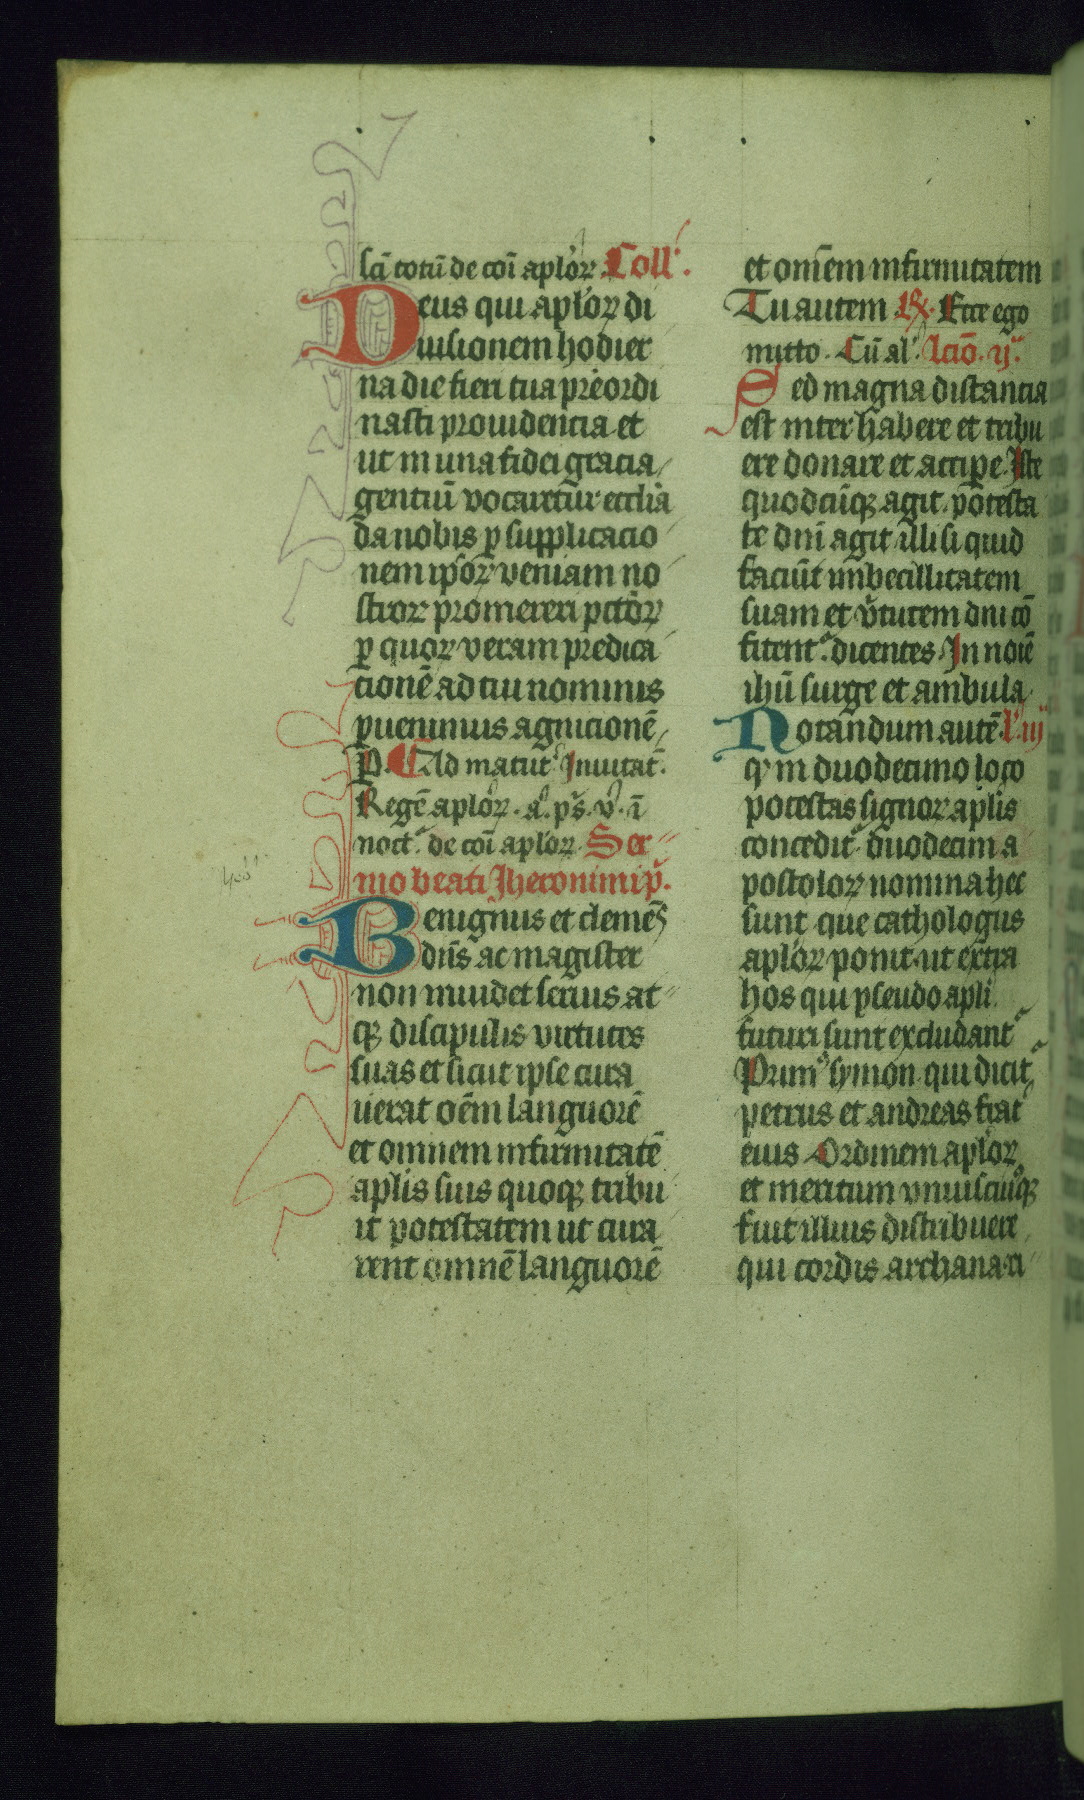 scā totū de coī aplor̄ꝝ. Coll'.
Deus qui aplorꝝ di
uisionem hodier
na die fieri tua preordi
nasti prouidencia et
ut in una fidei gracia
gentiū vocaretur ecclīa
da nobis ꝑ supplicacio
nem ipsorꝝ veniam no
strorꝝ promereri pctorꝝ
ꝑ quorꝝ veram predica
cionē ad tui nominis
ꝑuenimus agnicionē
P. Ad matut' Inuitat'.
Regē aplorꝝ. a. ps. v. ī
noct' de coī aplorꝝ. Ser
mo beati Jheronimi p̄.
Benignus et clemēs
dn̄s ac magister
non inuidet seruis at
qꝫ discipulis virtutes
suas et sicut ipse cura
uerat oēm languorē
et omnem infirmitatē
aplīs suis quoqꝫ tribu
it potestatem ut cura
rent omnē languorē
et omēm infirmitatem
Tu autem ℟. Ecce ego
mitto. Cū al' Lcīo. ij.
Sed magna distancia
est inter habere et tribu
ere donare et accipe. Iste
quodcūqꝫ agit. potesta
te dn̄i agit illi si quid
faciūt imbecillitatem
suam et v̄tutem dn̄i cō
fitent'. dicentes. In noīe
ihū surge et ambula
Notandum autē. l' iij
ꝙ in duodecimo loco
potestas signorꝝ aplīs
concedit' duodecim a
postolorꝝ nomina hec
sunt que cathologus
aplorꝝ ponit ut extra
hos qui pseudo aplī
futuri sunt excludant'
Primꝰ symon qui dicit'
petrus et andreas frat'
eius Ordinem aplorꝝ
et meritum vniuscuiꝰqꝫ
fuit illius distribuere
qui cordis archana ri